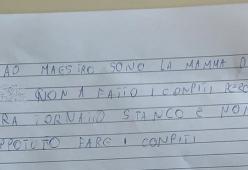 AO MAESTRO SONO LA MAMMA D
NON A FATTO I COMPITI PERO
RA TORNATO STANCO E NON
POTUTO FARE I COMPITI